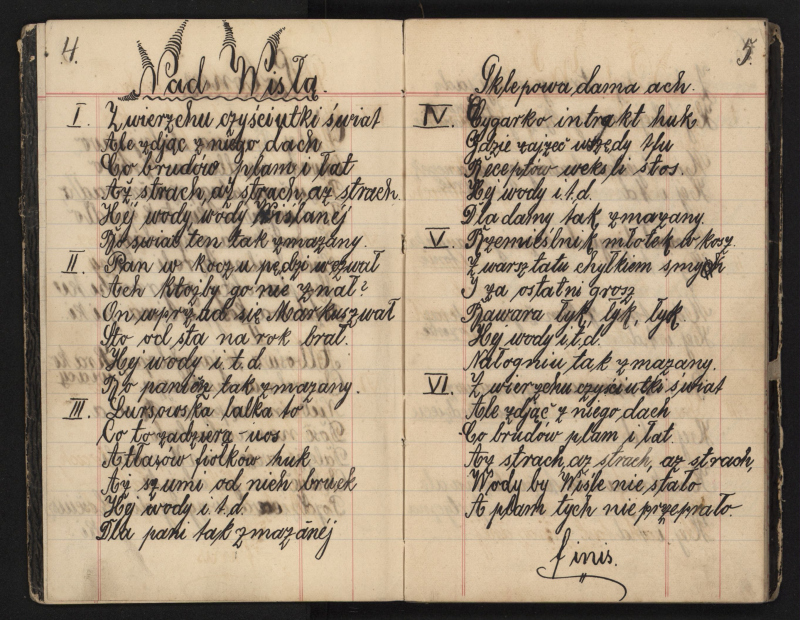 4.
Nad Wisłą.
I. Z wierzchu czyściutki świat
Ale zdjąc z niego dach
Co brudów plam i łat
Aż strach, aż strach, aż strach.
Hej wody wody Wiślanéj
Bo swiat ten tak zmazany.
II. Pan w koczu pędzi wczwał
Ach któżby go nie znał?
On wprzód się Markuszwał
Sto od sta na rok brał.
Hej wody i. t. d.
Bo panicz tak zmazany.
III. Lursowska lalka to
Co to zadziera nos
Atłasów fiolków huk
Aż szumi od nich bruk
Hej wody i. t. d.
Dla pani tak zmazanéj
5.
Sklepowa dama ach.
IV. Cygarko intrakt huk
Gdzie zajzeć wszędy tłu
Receptów weksli stos.
Hej wody i. t. d.
Dla damy tak zmazany.
V. Rzemieslnik młotek w kosz.
Z warsztatu chyłkiem smyk
I za ostatni grosz
Bawara łyk, łyk, łyk.
Hej wody i. t. d.
Nałogniu tak zmazany.
VI. Z wierzchu czyściutki świat
Ale zdjąć z niego dach
Co brudów plam i łat.
Aż strach, aż strach, aż strach,
Wody by Wiśle nie stało
A plam tych nie przeprało.
finis.